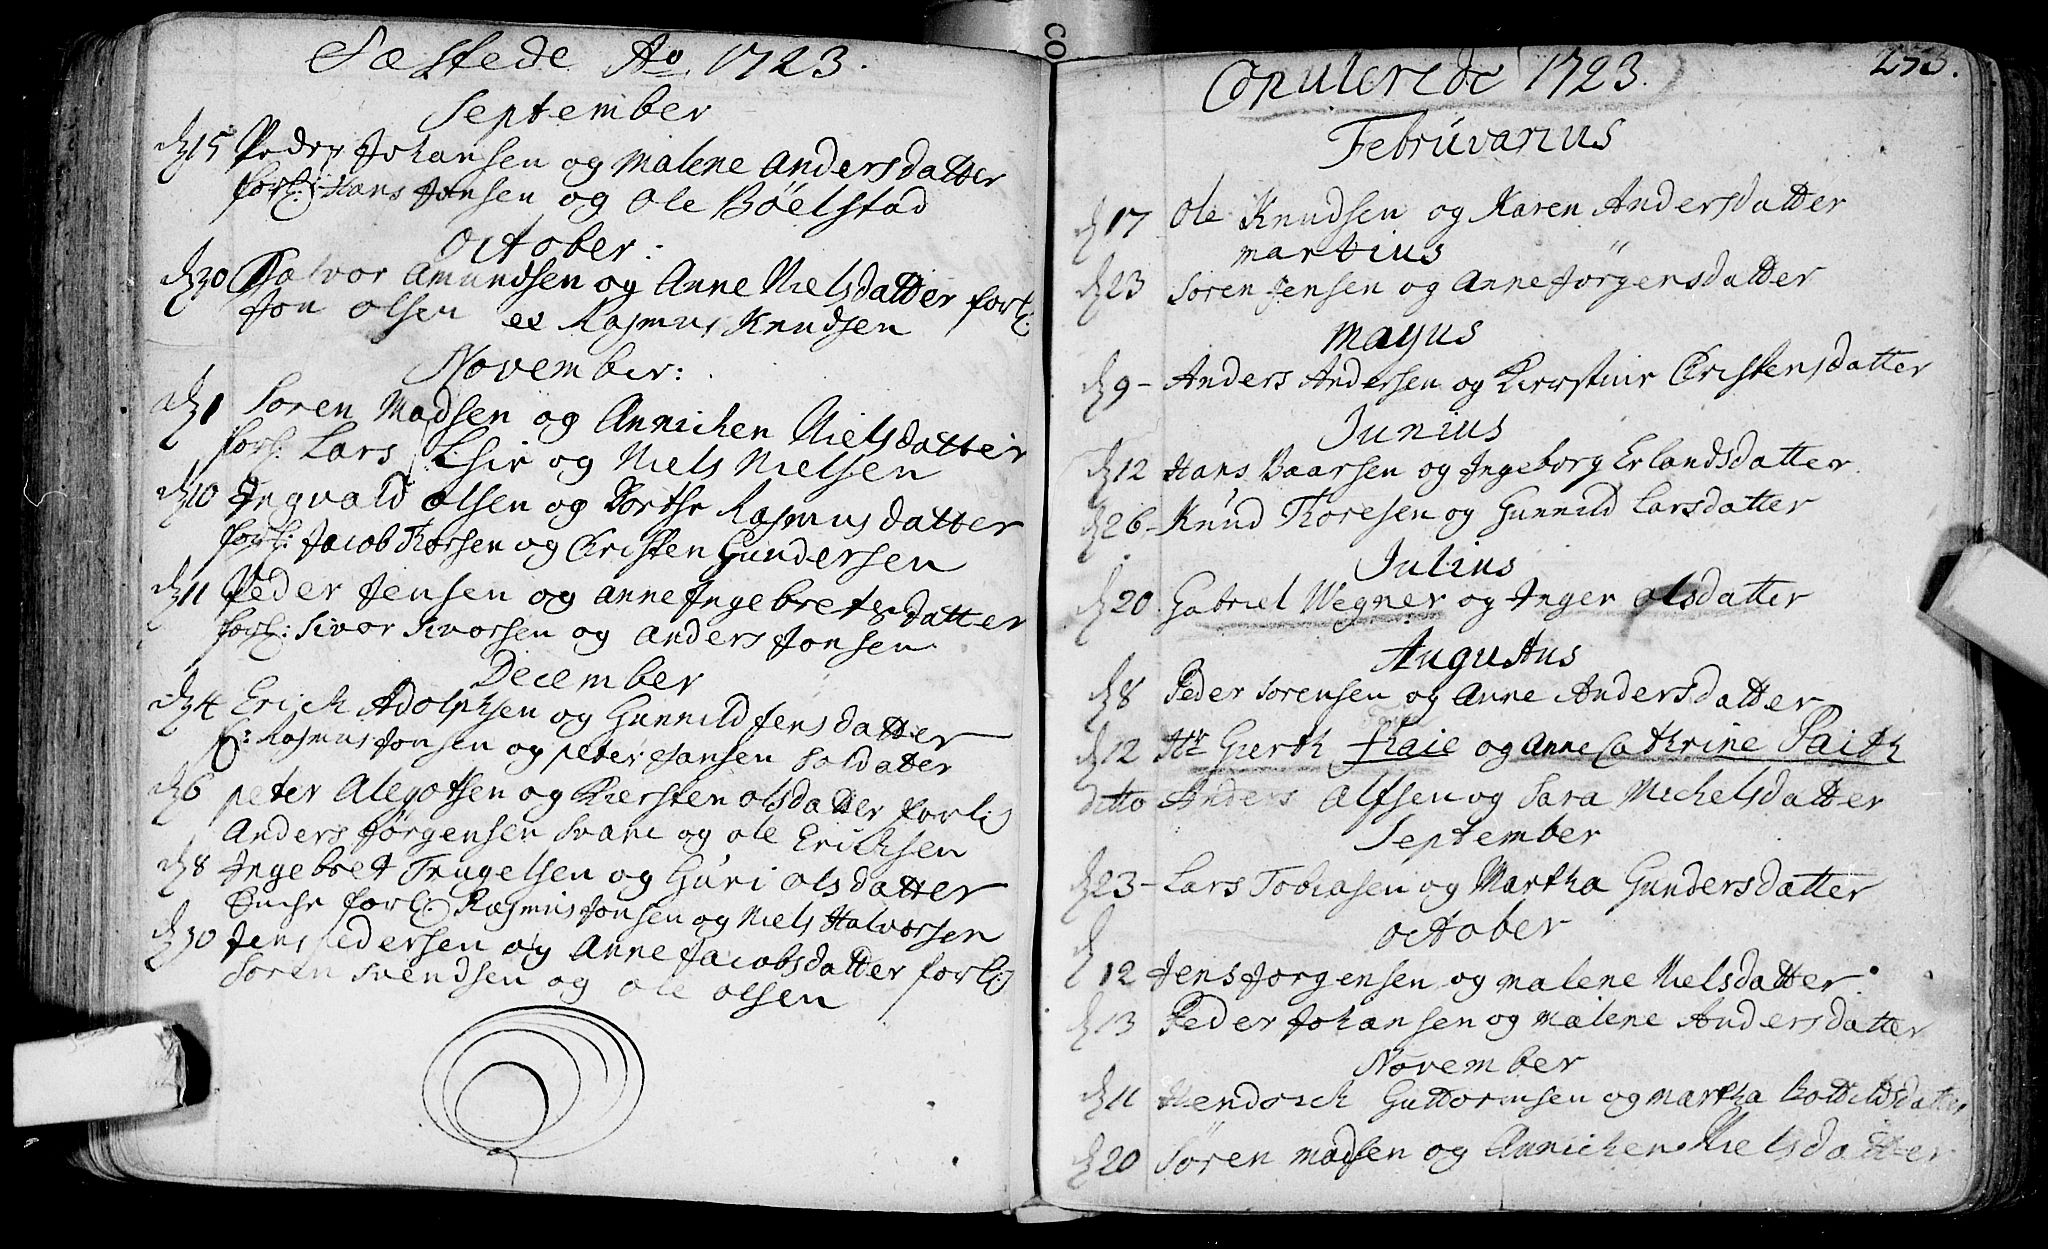 Fæstede Ao 1723.
September
d 15 Peder Johansen og Malene Andersdatter
forl: Hans Jonsen og Ole Böelstad
October:
d 30 Halvor Amundsen og Anne Nielsdatter forl:
Jon Olsen et Rasmus Knudsen
November:
d 1 Soren Madsen og Annichen Nielsdatter
forl: Lars og Niels Nielsen
d 10 Ingvald Olsen og Dorthe Rasmusdatter
forl: Jacob Thorsen og Christen Gundersen
d 11 Peder Jensen og Anne Ingebretsdatter
forl: Sivor Sivorsen og Anders Jonsen
December
d 4 Erich Adolphsen og Gunnild Jensdatter
f: Rasmus Jonsen og peter Hansen Soldatter
d 6 peter Alegotsen og Kiersten olsdatter forl:
Anders Jørgensen Svane og ole Ericksen
d 8 Ingebret Trugelsen og Guri olsdatter
Enche forl: Rasmus Jonsen og Niels Halvorsen
d 30 Jens pedersen og Anne Jacobsdatter forl:
Soren Svendsen og ole olsen
253.
Copulerede 1723.
Februvarius
d 17 Ole Knudsen og Karen Andersdatter
martius
d 23 Soren Jensen og Anne Jörgensdatter
Mayus
d 9 - Anders Andersen og Kirstine Christensdatter
Junius
d 12 Hans Baarsen og Ingeborg Erlandsdatter
d 26 - Knud Thoresen og Gunnild Larsdatter
Julius
d 20 Gabriel Wegner og Inger olsdatter
Augustus
d 8 Peder Sorensen og Anne Andersdatter
d 12 Hr Gierth Faie og Anne Cathrine Paith
ditto Anders Alfsen og Sara Michelsdatter
September
d 23 - Lars Tobiasen og Martha Gundersdatter
October
d 12 Jens Jorgensen og malene Nielsdatter
d 13 Peder Johansen og Malene Andersdatter
November
d 11 Hendrich Guttormsen og martha Bottildsdatter
d 20 Søren madsen og Annichen Nielsdatter